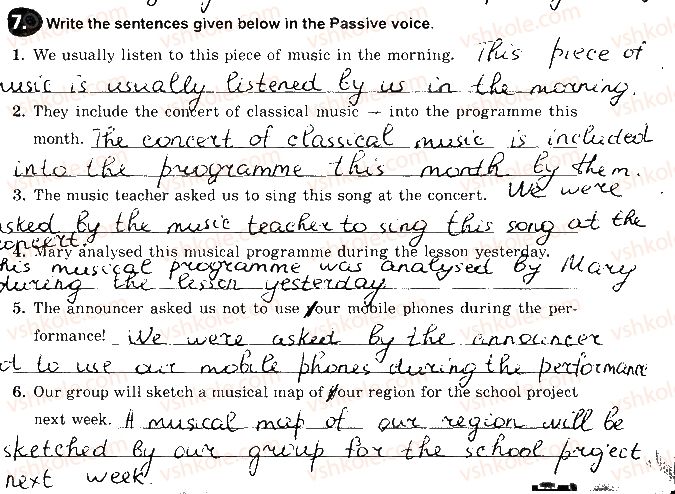 7. Write the sentences given below in the Passive voice.
1. We usually listen to this piece of music in the morning. This piece of
music is usually listened by us in the morning.
2. They include the concert of classical music – into the programme this
month. The concert of classical music is included
into the programme this month by them.
3. The music teacher asked us to sing this song at the concert. We were
asked by the music teacher to sing this song at the
concert.
4. Mary analysed this musical programme during the lesson yesterday.
his musical programme was analysed by Mary
during the lesson yesterday
5. The announcer asked us not to use our mobile phones during the per-
formance! We were asked by the announcer
to use our mobile phones during the performance
6. Our group will sketch a musical map of our region for the school project
next week. A musical map of our region will be
sketched by our group for the school project
next week.